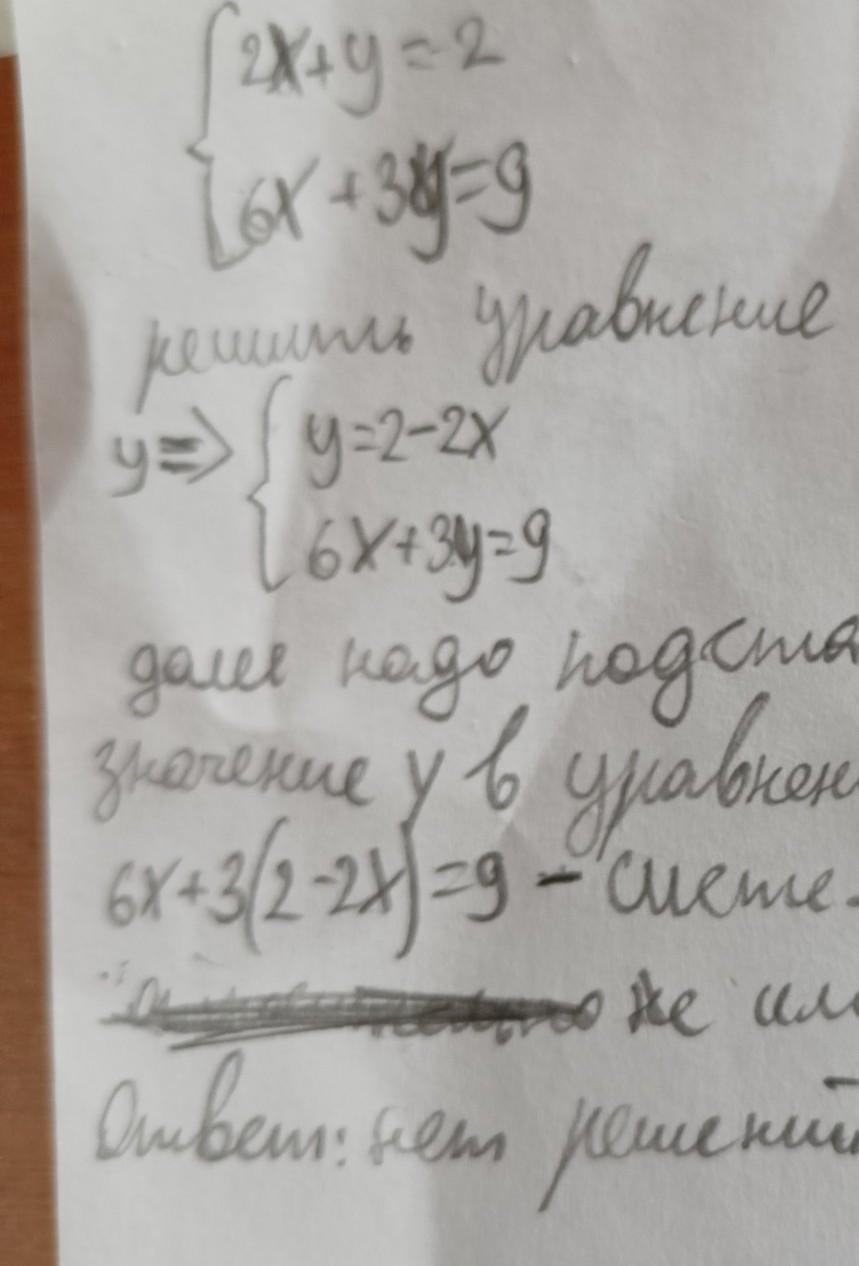 2x+y=2
6x+3y=9
решить уравнение
y⇒ y=2-2x
6x+3y=9
дале надо подста
значение y в уравнен
6x+3(2-2x)=9 - систе-
же им
Ответ: нет решений